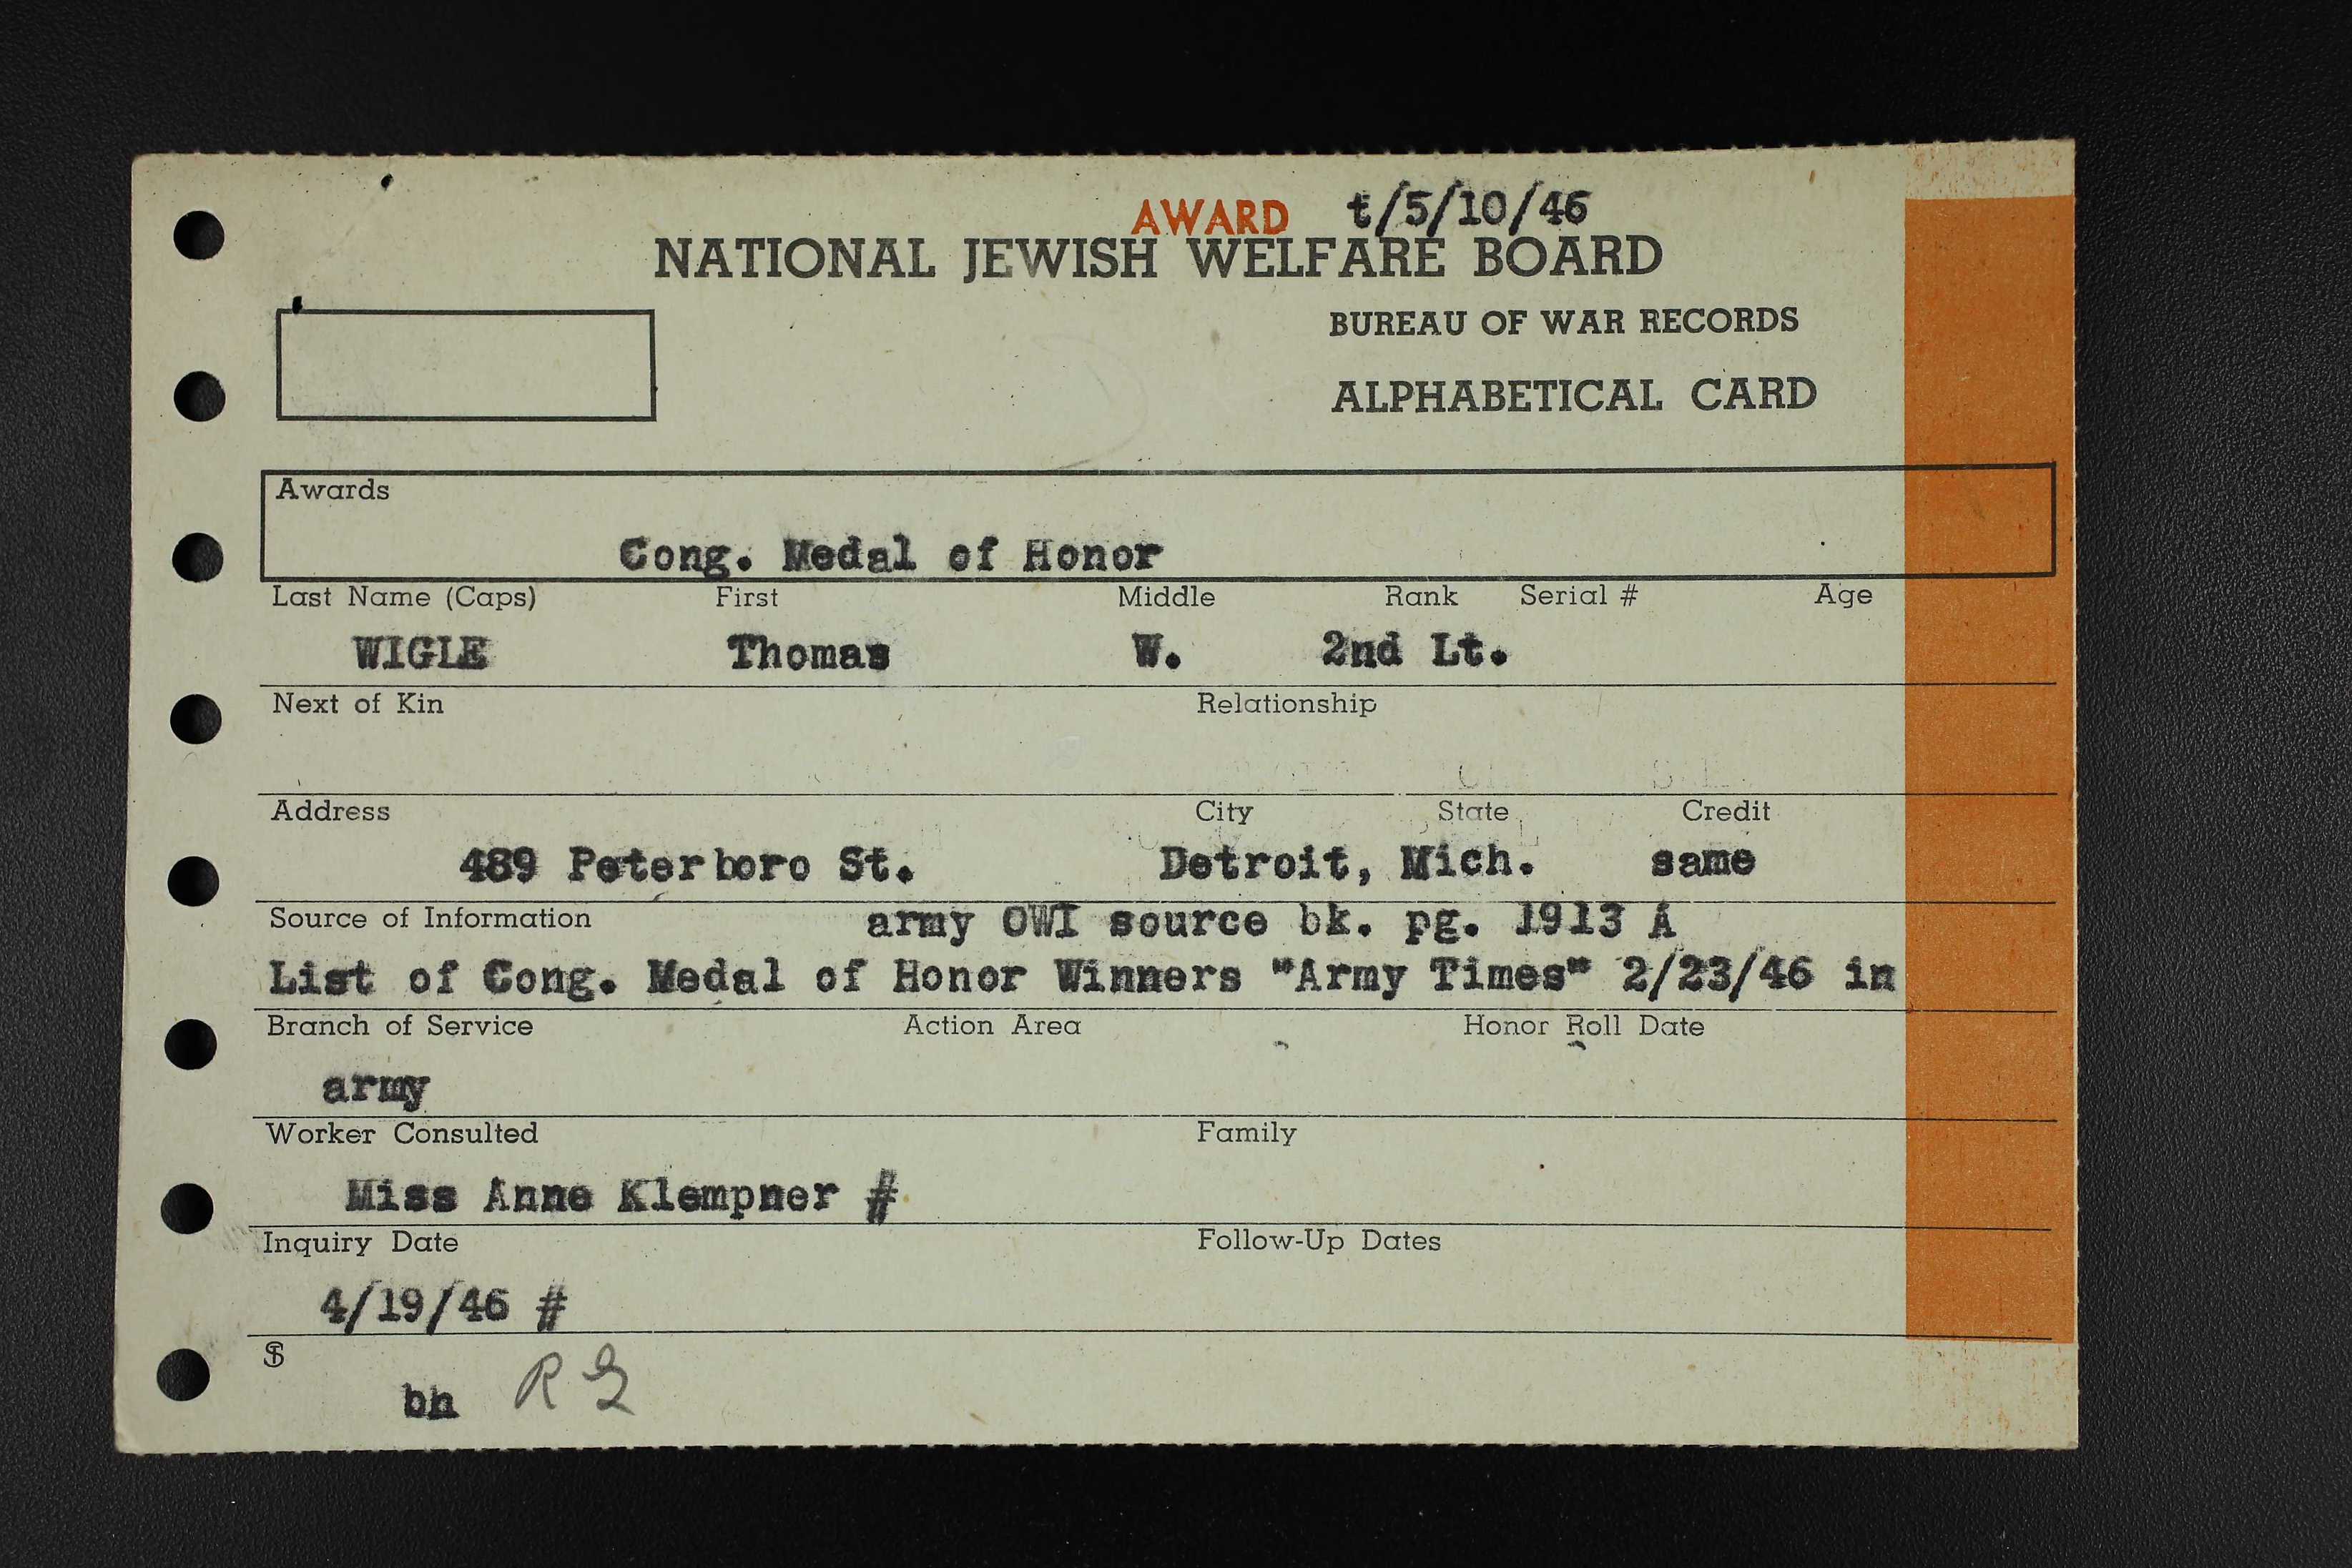 AWARD t/5/10/46
NATIONAL JEWISH WELFARE BOARD
BUREAU OF WAR RECORDS
ALPHABETICAL CARD
Awards
Cong. Medal of Honor
Last Name (Caps) First Middle Rank Serial # Age
WIGLE Thomas W. 2nd Lt.
Next of Kin Relationship
Address City State Credit
489 Peterboro St. Detroit, Mich. same
Source of Information army OWI source bk. pg. 1913 A
List of Cong. Medal of Honor Winners "Army Times" 2/23/46 in
Branch of Service Action Area Honor Roll Date
army
Worker Consulted Family
Miss Anne Klempner #
Inquiry Date Follow-Up Dates
4/19/46 #
bh